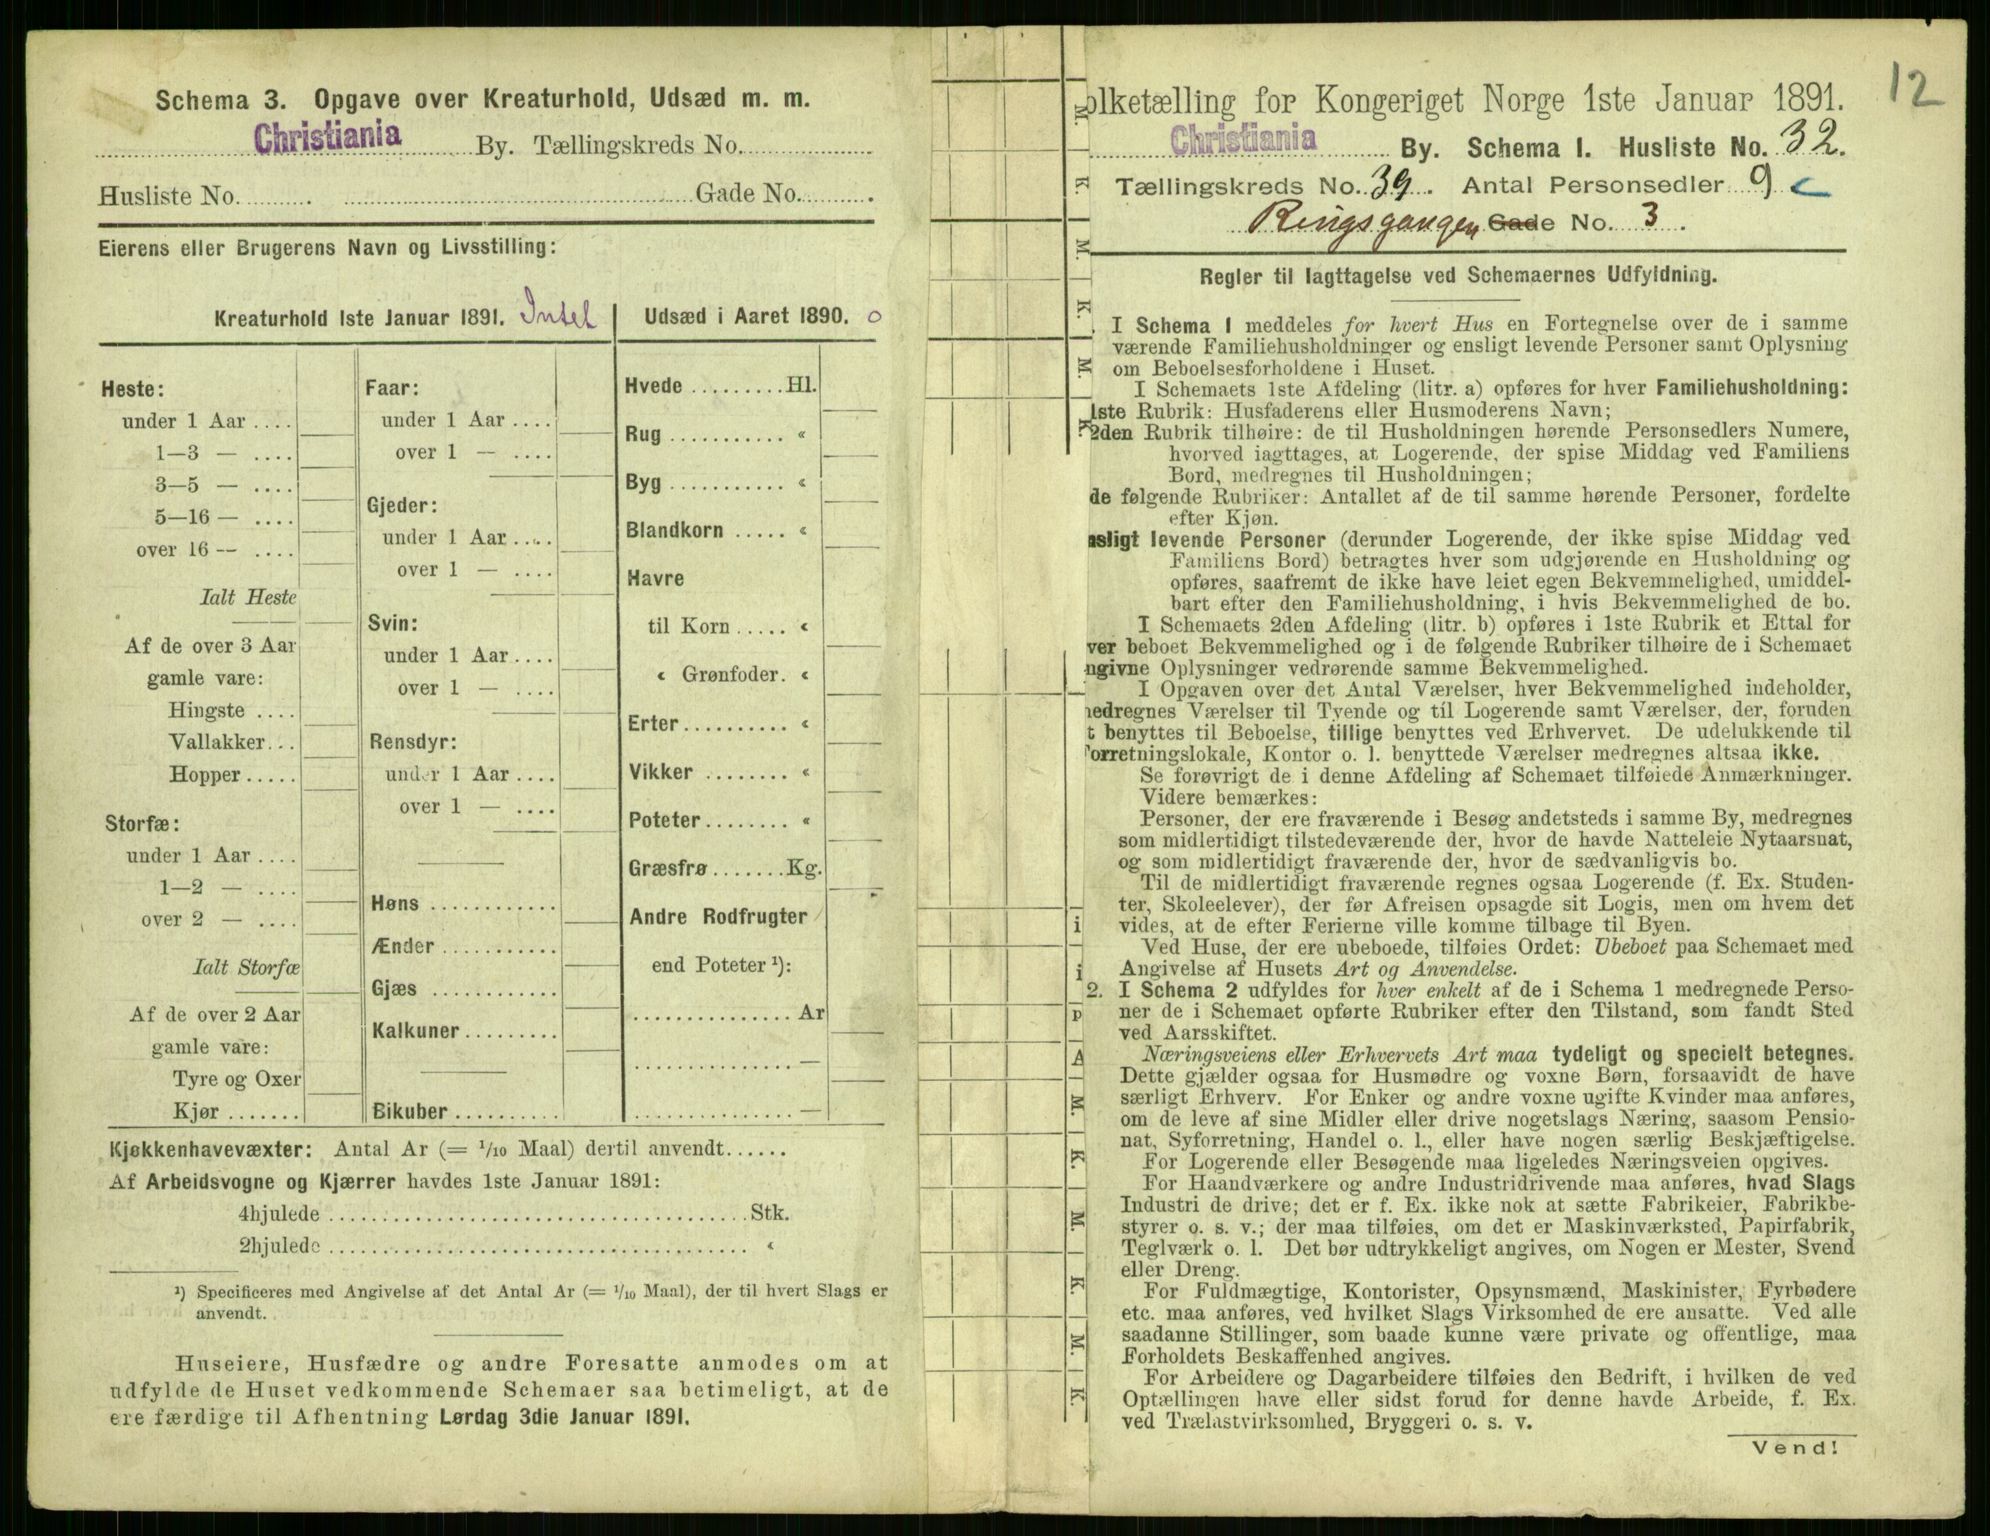 Schema 3. Opgave over Kreaturhold, Udsæd m. m.
Christiania By. Tællingskreds No.
Husliste No. . Gade No. .
Eierens eller Brugerens Navn og Livsstilling:
Kreaturhold 1ste Januar 1891. Intet
Heste:
under 1 Aar ....
1—3 — ....
3—5 — ....
5—16 — ....
over 16 — ....
Ialt Heste
Af de over 3 Aar
gamle vare:
Hingste ....
Vallakker...
Hopper.....
Storfæ:
under 1 Aar ....
1—2 — ....
over 2 — ....
Ialt Storfæ
Af de over 2 Aar
gamle vare:
Tyre og Oxer
Kjør.......
Faar:
under 1 Aar ....
over 1 — ....
Gjeder:
under 1 Aar ....
over 1 — ....
Svin:
under 1 Aar ....
over 1 — ....
Rensdyr:
under 1 Aar ....
over 1 — ....
Høns ............
Ænder ...........
Gjæs ............
Kalkuner.........
Bikuber..........
Udsæd i Aaret 1890. 0
Hvede .........Hl.
Rug ........... «
Byg ........... «
Blandkorn ..... «
Havre
til Korn ..... «
« Grønfoder. «
Erter .......... «
Vikker ........ «
Poteter........ «
Græsfrø .......Kg.
Andre Rodfrugter
end Poteter ¹):
...............Ar
............... —
............... —
Kjøkkenhavevæxter: Antal Ar (= 1/10 Maal) dertil anvendt......
Af Arbeidsvogne og Kjærrer havdes 1ste Januar 1891:
4hjulede ........................................Stk.
2hjulede ........................................ «
¹) Specificeres med Angivelse af det Antal Ar (= 1/10 Maal), der til hvert Slags er
anvendt.
Huseiere, Husfædre og andre Foresatte anmodes om at
udfylde de Huset vedkommende Schemaer saa betimeligt, at de
ere færdige til Afhentning Lørdag 3die Januar 1891.
M.
K.
M.
K.
M.
K.
i
i
p
A
M.
K.
M.
K.
M.
K.
12
olketælling for Kongeriget Norge 1ste Januar 1891.
Christiania By. Schema 1. Husliste No. 32.
Tællingskreds No. 39. Antal Personsedler 9
Ringsgangen Gade No. 3.
Regler til Iagttagelse ved Schemaernes Udfyldning.
. I Schema 1 meddeles for hvert Hus en Fortegnelse over de i samme
værende Familiehusholdninger og ensligt levende Personer samt Oplysning
om Beboelsesforholdene i Huset.
I Schemaets 1ste Afdeling (litr. a) opføres for hver Familiehusholdning:
1ste Rubrik: Husfaderens eller Husmoderens Navn;
2den Rubrik tilhøire: de til Husholdningen hørende Personsedlers Numere,
hvorved iagttages, at Logerende, der spise Middag ved Familiens
Bord, medregnes til Husholdningen;
de følgende Rubriker: Antallet af de til samme hørende Personer, fordelte
efter Kjøn.
nsligt levende Personer (derunder Logerende, der ikke spise Middag ved
Familiens Bord) betragtes hver som udgjørende en Husholdning og
opføres, saafremt de ikke have leiet egen Bekvemmelighed, umiddel-
bart efter den Familiehusholdning, i hvis Bekvemmelighed de bo.
I Schemaets 2den Afdeling (litr. b) opføres i 1ste Rubrik et Ettal for
ver beboet Bekvemmelighed og i de følgende Rubriker tilhøire de i Schemaet
ngivne Oplysninger vedrørende samme Bekvemmelighed.
I Opgaven over det Antal Værelser, hver Bekvemmelighed indeholder,
nedregnes Værelser til Tyende og til Logerende samt Værelser, der, foruden
t benyttes til Beboelse, tillige benyttes ved Erhvervet. De udelukkende til
Forretningslokale, Kontor o. l. benyttede Værelser medregnes altsaa ikke.
Se forøvrigt de i denne Afdeling af Schemaet tilføiede Anmærkninger.
Videre bemærkes:
Personer, der ere fraværende i Besøg andetsteds i samme By, medregnes
som midlertidigt tilstedeværende der, hvor de havde Natteleie Nytaarsnat,
og som midlertidigt fraværende der, hvor de sædvanligvis bo.
Til de midlertidigt fraværende regnes ogsaa Logerende (f. Ex. Studen-
ter, Skoleelever), der før Afreisen opsagde sit Logis, men om hvem det
vides, at de efter Ferierne ville komme tilbage til Byen.
Ved Huse, der ere ubeboede, tilføies Ordet: Ubeboet paa Schemaet med
Angivelse af Husets Art og Anvendelse.
2. I Schema 2 udfyldes for hver enkelt af de i Schema 1 medregnede Perso-
ner de i Schemaet opførte Rubriker efter den Tilstand, som fandt Sted
ved Aarsskiftet.
Næringsveiens eller Erhvervets Art maa tydeligt og specielt betegnes.
Dette gjælder ogsaa for Husmødre og voxne Børn, forsaavidt de have
særligt Erhverv. For Enker og andre voxne ugifte Kvinder maa anføres,
om de leve af sine Midler eller drive nogetslags Næring, saasom Pensio-
nat, Syforretning, Handel o. l., eller have nogen særlig Beskjæftigelse.
For Logerende eller Besøgende maa ligeledes Næringsveien opgives.
For Haandværkere og andre Industridrivende maa anføres, hvad Slags
Industri de drive; det er f. Ex. ikke nok at sætte Fabrikeier, Fabrikbe-
styrer o. s. v.; der maa tilføies, om det er Maskinværksted, Papirfabrik,
Teglværk o. l. Det bør udtrykkeligt angives, om Nogen er Mester, Svend
eller Dreng.
For Fuldmægtige, Kontorister, Opsynsmænd, Maskinister, Fyrbødere
etc. maa anføres, ved hvilket Slags Virksomhed de ere ansatte. Ved alle
saadanne Stillinger, som baade kunne være private og offentlige, maa
Forholdets Beskaffenhed angives.
For Arbeidere og Dagarbeidere tilføies den Bedrift, i hvilken de ved
Optællingen have eller sidst forud for denne havde Arbeide, f. Ex.
ved Trælastvirksomhed, Bryggeri o. s. v.
Vend!